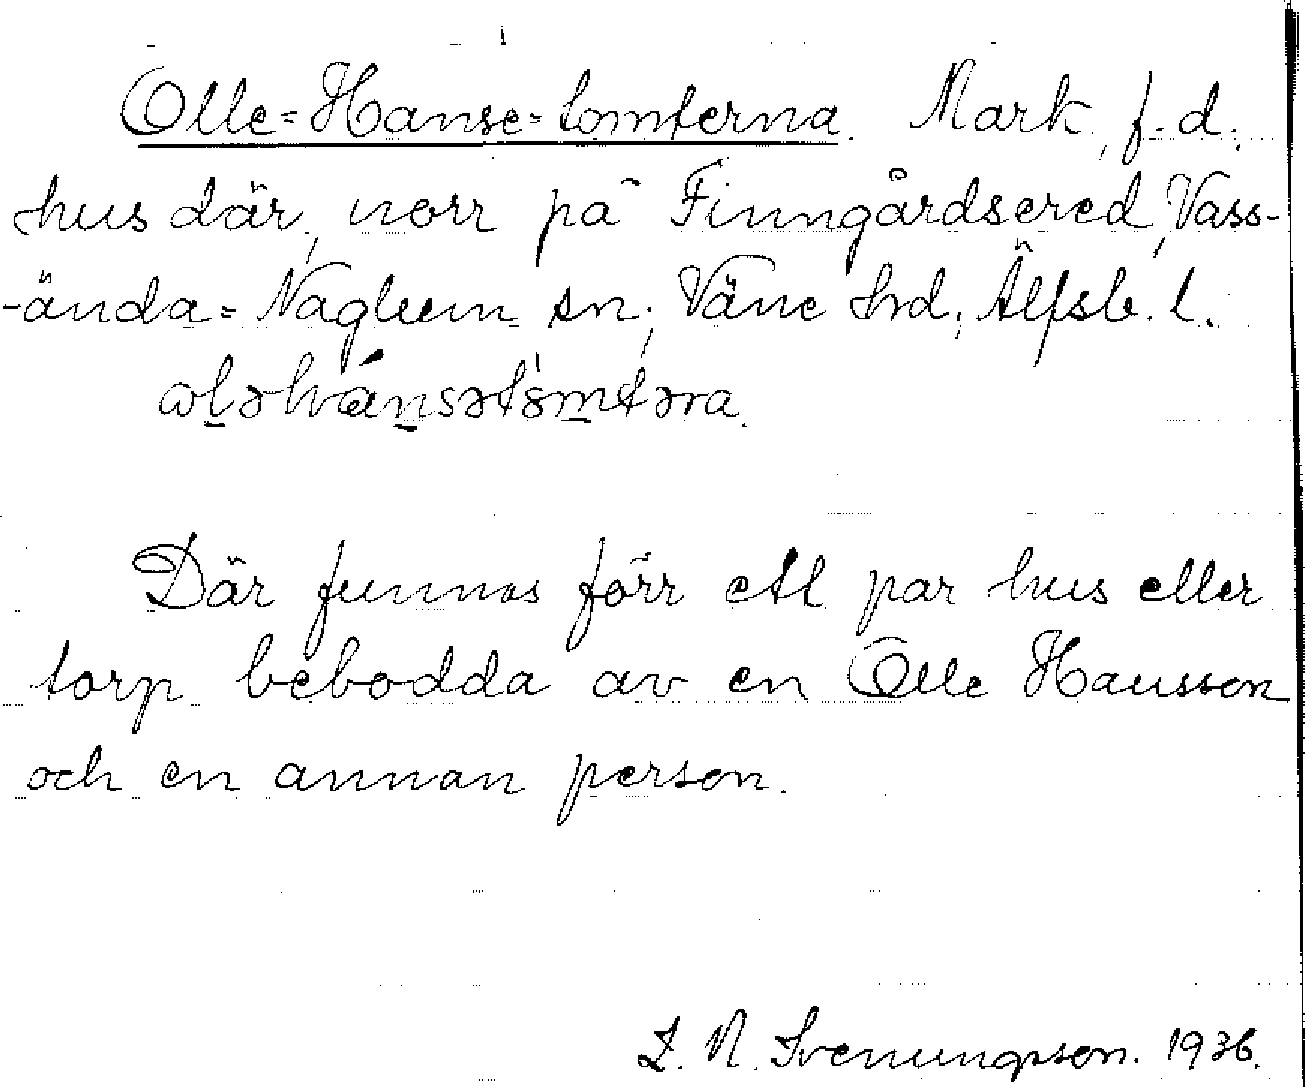 Olle-Hanse-tomterna. Mark, f.d.
hus där, norr på Finngårdsered, Vass-
-ända-Naglum sn, Väne hrd, Älfsb. l.

Där funnos förr ett par hus eller
torp bebodda av en Olle Hansson
och en annan person.
N. Svenungsson. 1936.